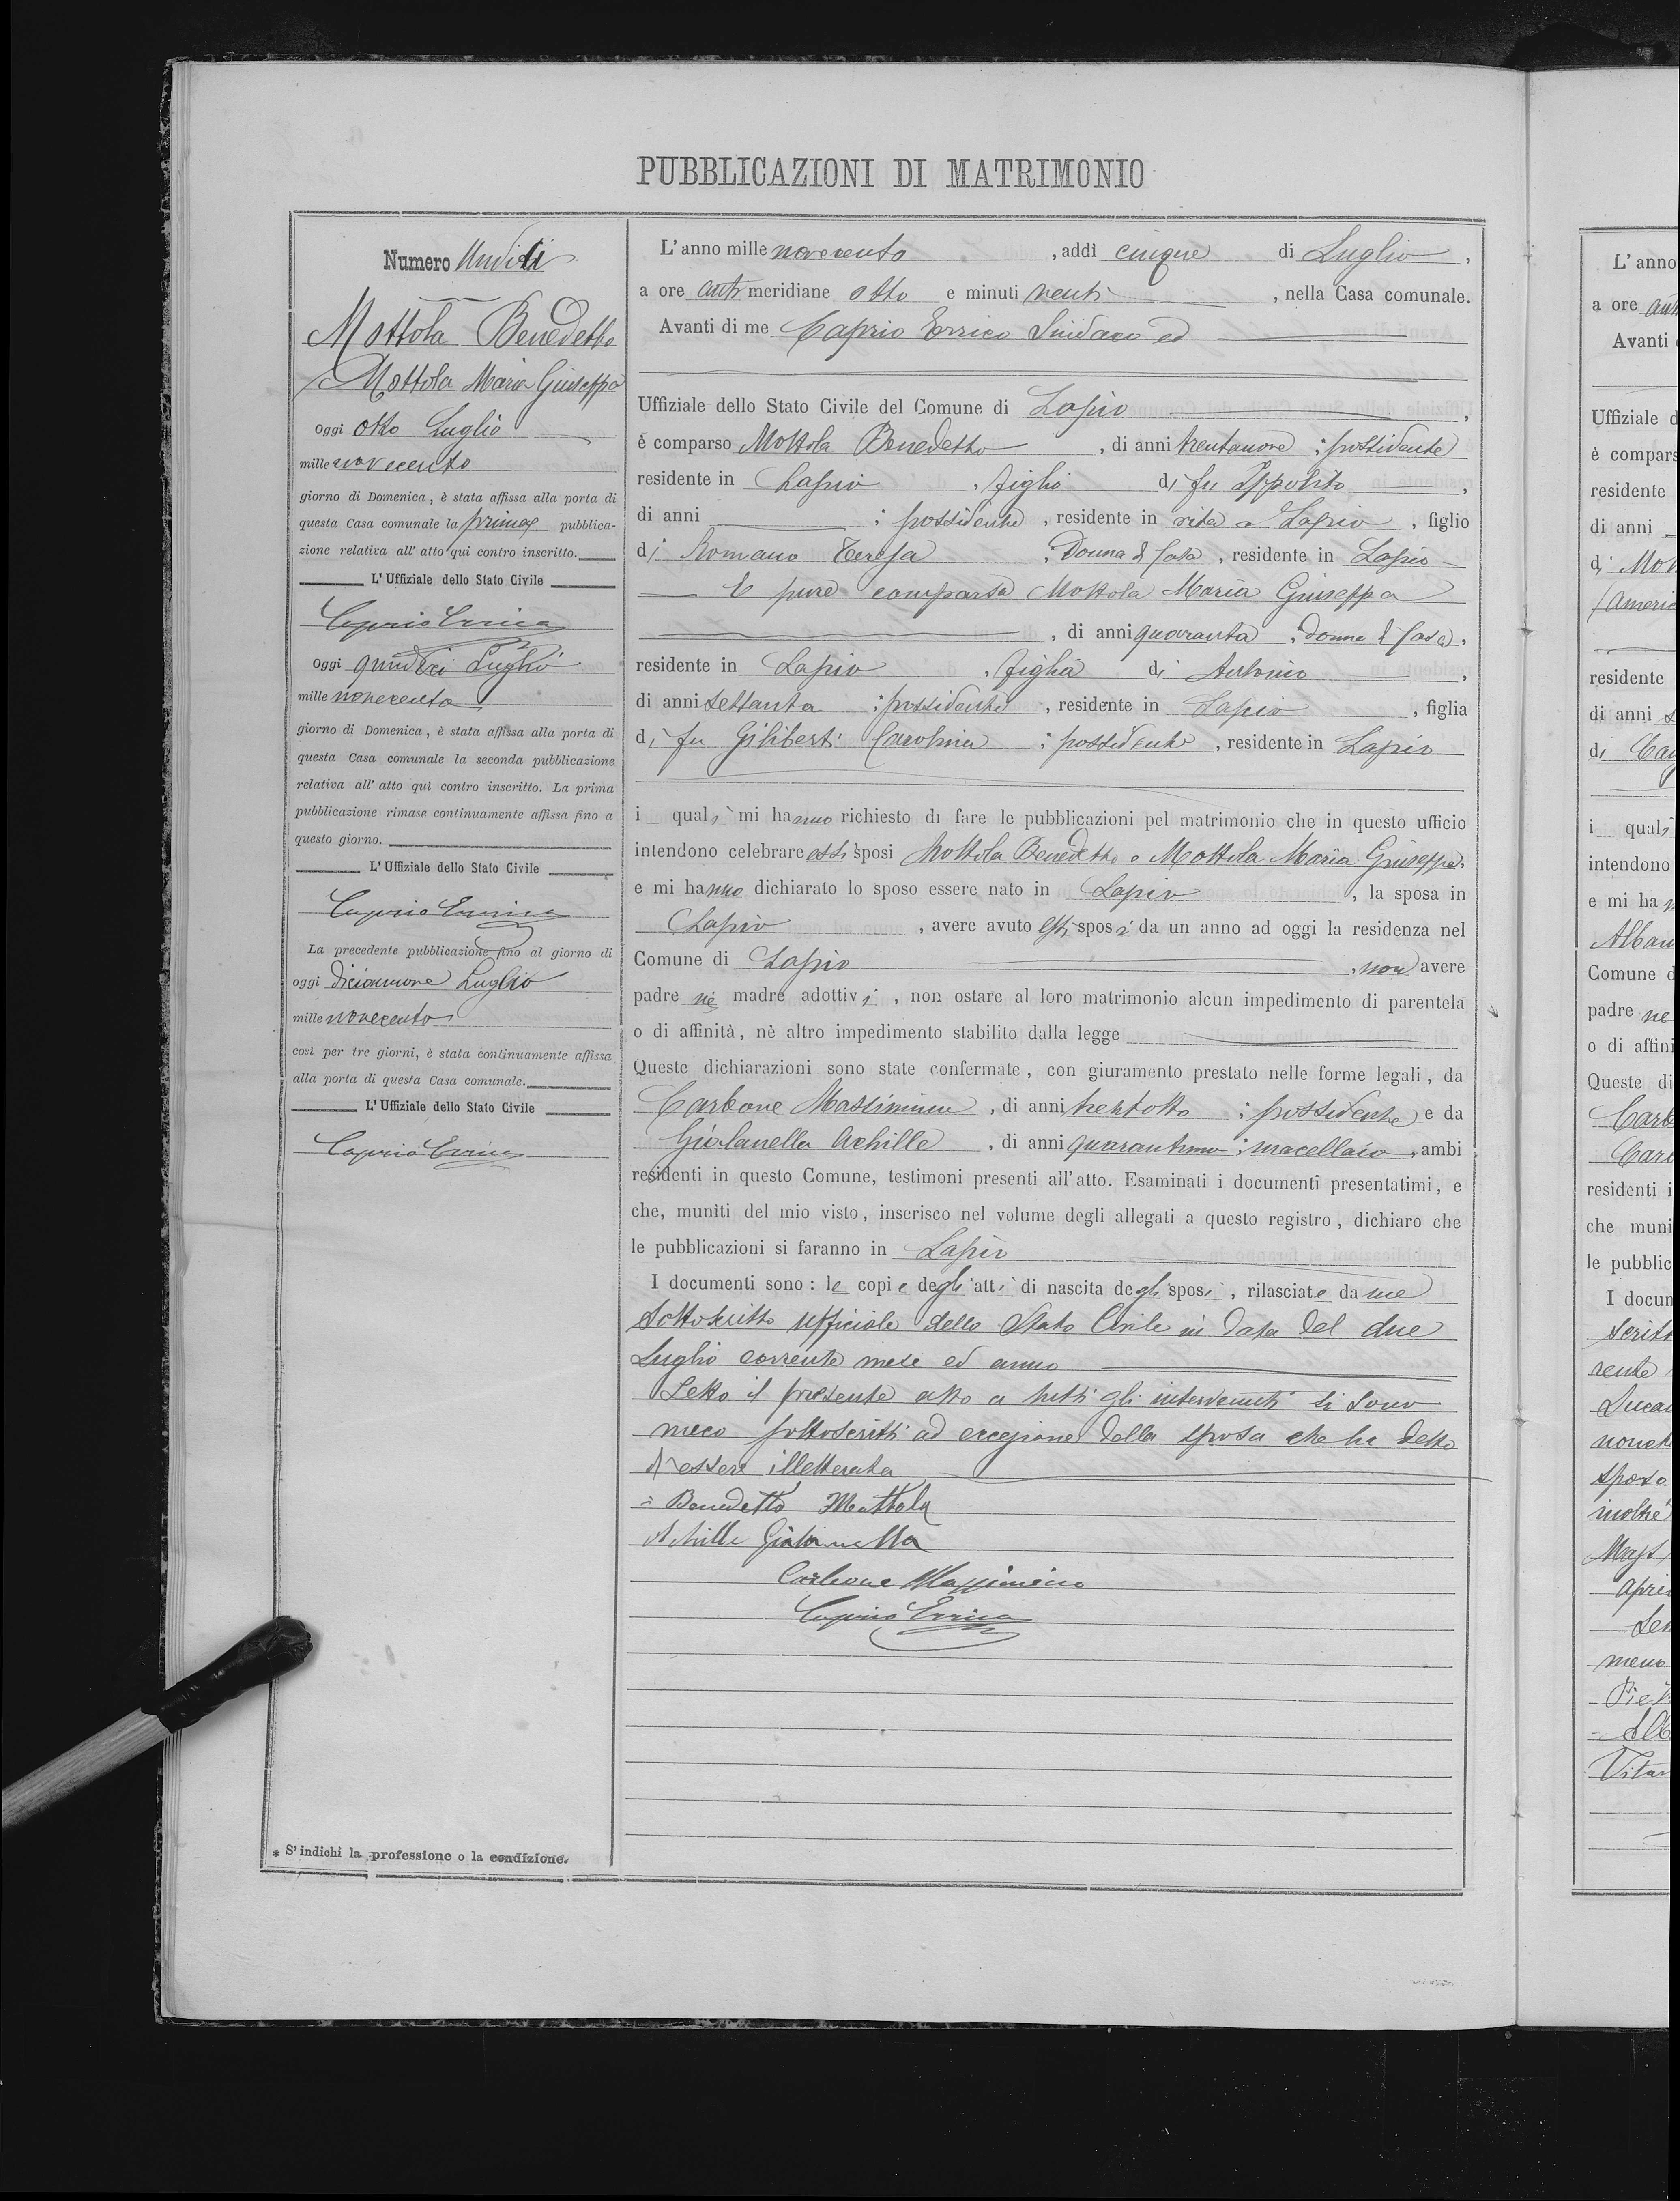 PUBBLICAZIONI DI MATRIMONIO
Numero Undici
Mottola Benedetto
Mottola Maria Giuseppa
oggi otto Luglio
mille novecento
giorno di Domenica, è stata affissa alla porta di
questa Casa comunale la prima pubblica-
zione relativa all' atto qui contro inscritto.
L' Uffiziale dello Stato Civile
Caprio Errico
oggi quindici Luglio
mille novecento
giorno di Domenica, è stata affissa alla porta di
questa Casa comunale la seconda pubblicazione
relativa all' atto quì contro inscritto. La prima
pubblicazione rimase continuamente affissa fino a
questo giorno.
L' Uffiziale dello Stato Civile
Caprio Errico
La precedente pubblicazione fino al giorno di
oggi diciannove Luglio
mille novecento
così per tre giorni, è stata continuamente affissa
alla porta di questa Casa comunale.
L' Uffiziale dello Stato Civile
Caprio Errico
* S' indichi la professione o la condizione.
L' anno mille novecento, addì cinque di Luglio,
a ore antimeridiane otto e minuti venti, nella Casa comunale.
Avanti di me Caprio Errico Sindaco ed
Uffiziale dello Stato Civile del Comune di Lapio,
è comparso Mottola Benedetto, di anni trentanove; possidente
residente in Lapio, figlio di fu Ippolito,
di anni ; possidente, residente in vita a Lapio, figlio
di Romano Teresa; Donna di Casa, residente in Lapio
E pure comparsa Mottola Maria Giuseppa
, di anni quaranta, donna di Casa,
residente in Lapio, figlia di Antonio,
di anni settanta; possidente, residente in Lapio, figlia
di fu Giliberti Carolina; possidente, residente in Lapio
i quali mi hanno richiesto di fare le pubblicazioni pel matrimonio che in questo ufficio
intendono celebrare essi sposi Mottola Benedetto e Mottola Maria Giuseppa
e mi hanno dichiarato lo sposo essere nato in Lapio, la sposa in
Lapio, avere avuto essi sposi da un anno ad oggi la residenza nel
Comune di Lapio, non avere
padre nè madre adottivi, non ostare al loro matrimonio alcun impedimento di parentela
o di affinità, nè altro impedimento stabilito dalla legge
Queste dichiarazioni sono state confermate, con giuramento prestato nelle forme legali, da
Carbone Massimino, di anni trentotto; possidente e da
Giolanella Achille, di anni quarantuno; macellaio, ambi
residenti in questo Comune, testimoni presenti all' atto. Esaminati i documenti presentatimi, e
che, muniti del mio visto, inserisco nel volume degli allegati a questo registro, dichiaro che
le pubblicazioni si faranno in Lapio
I documenti sono: le copie degli atti di nascita degli sposi, rilasciate da me
Sottoscritto ufficiale dello Stato Civile in data del due
Luglio corrente mese ed anno
Letto il presente atto a tutti gli intervenuti si sono
meco sottoscritti ad eccezione della sposa che ha detto
di essere illetterata
= Benedetto Mottola
Achille Giolanella
Carbone Massimino
Caprio Errico
L' anno
a ore
Avanti
Uffiziale d
è compars
residente
di anni
di
residente
di anni
di
i quali
intendono
e mi ha
Comune d
padre ne
o di affini
Queste di
residenti i
che muni
le pubblic
I docun